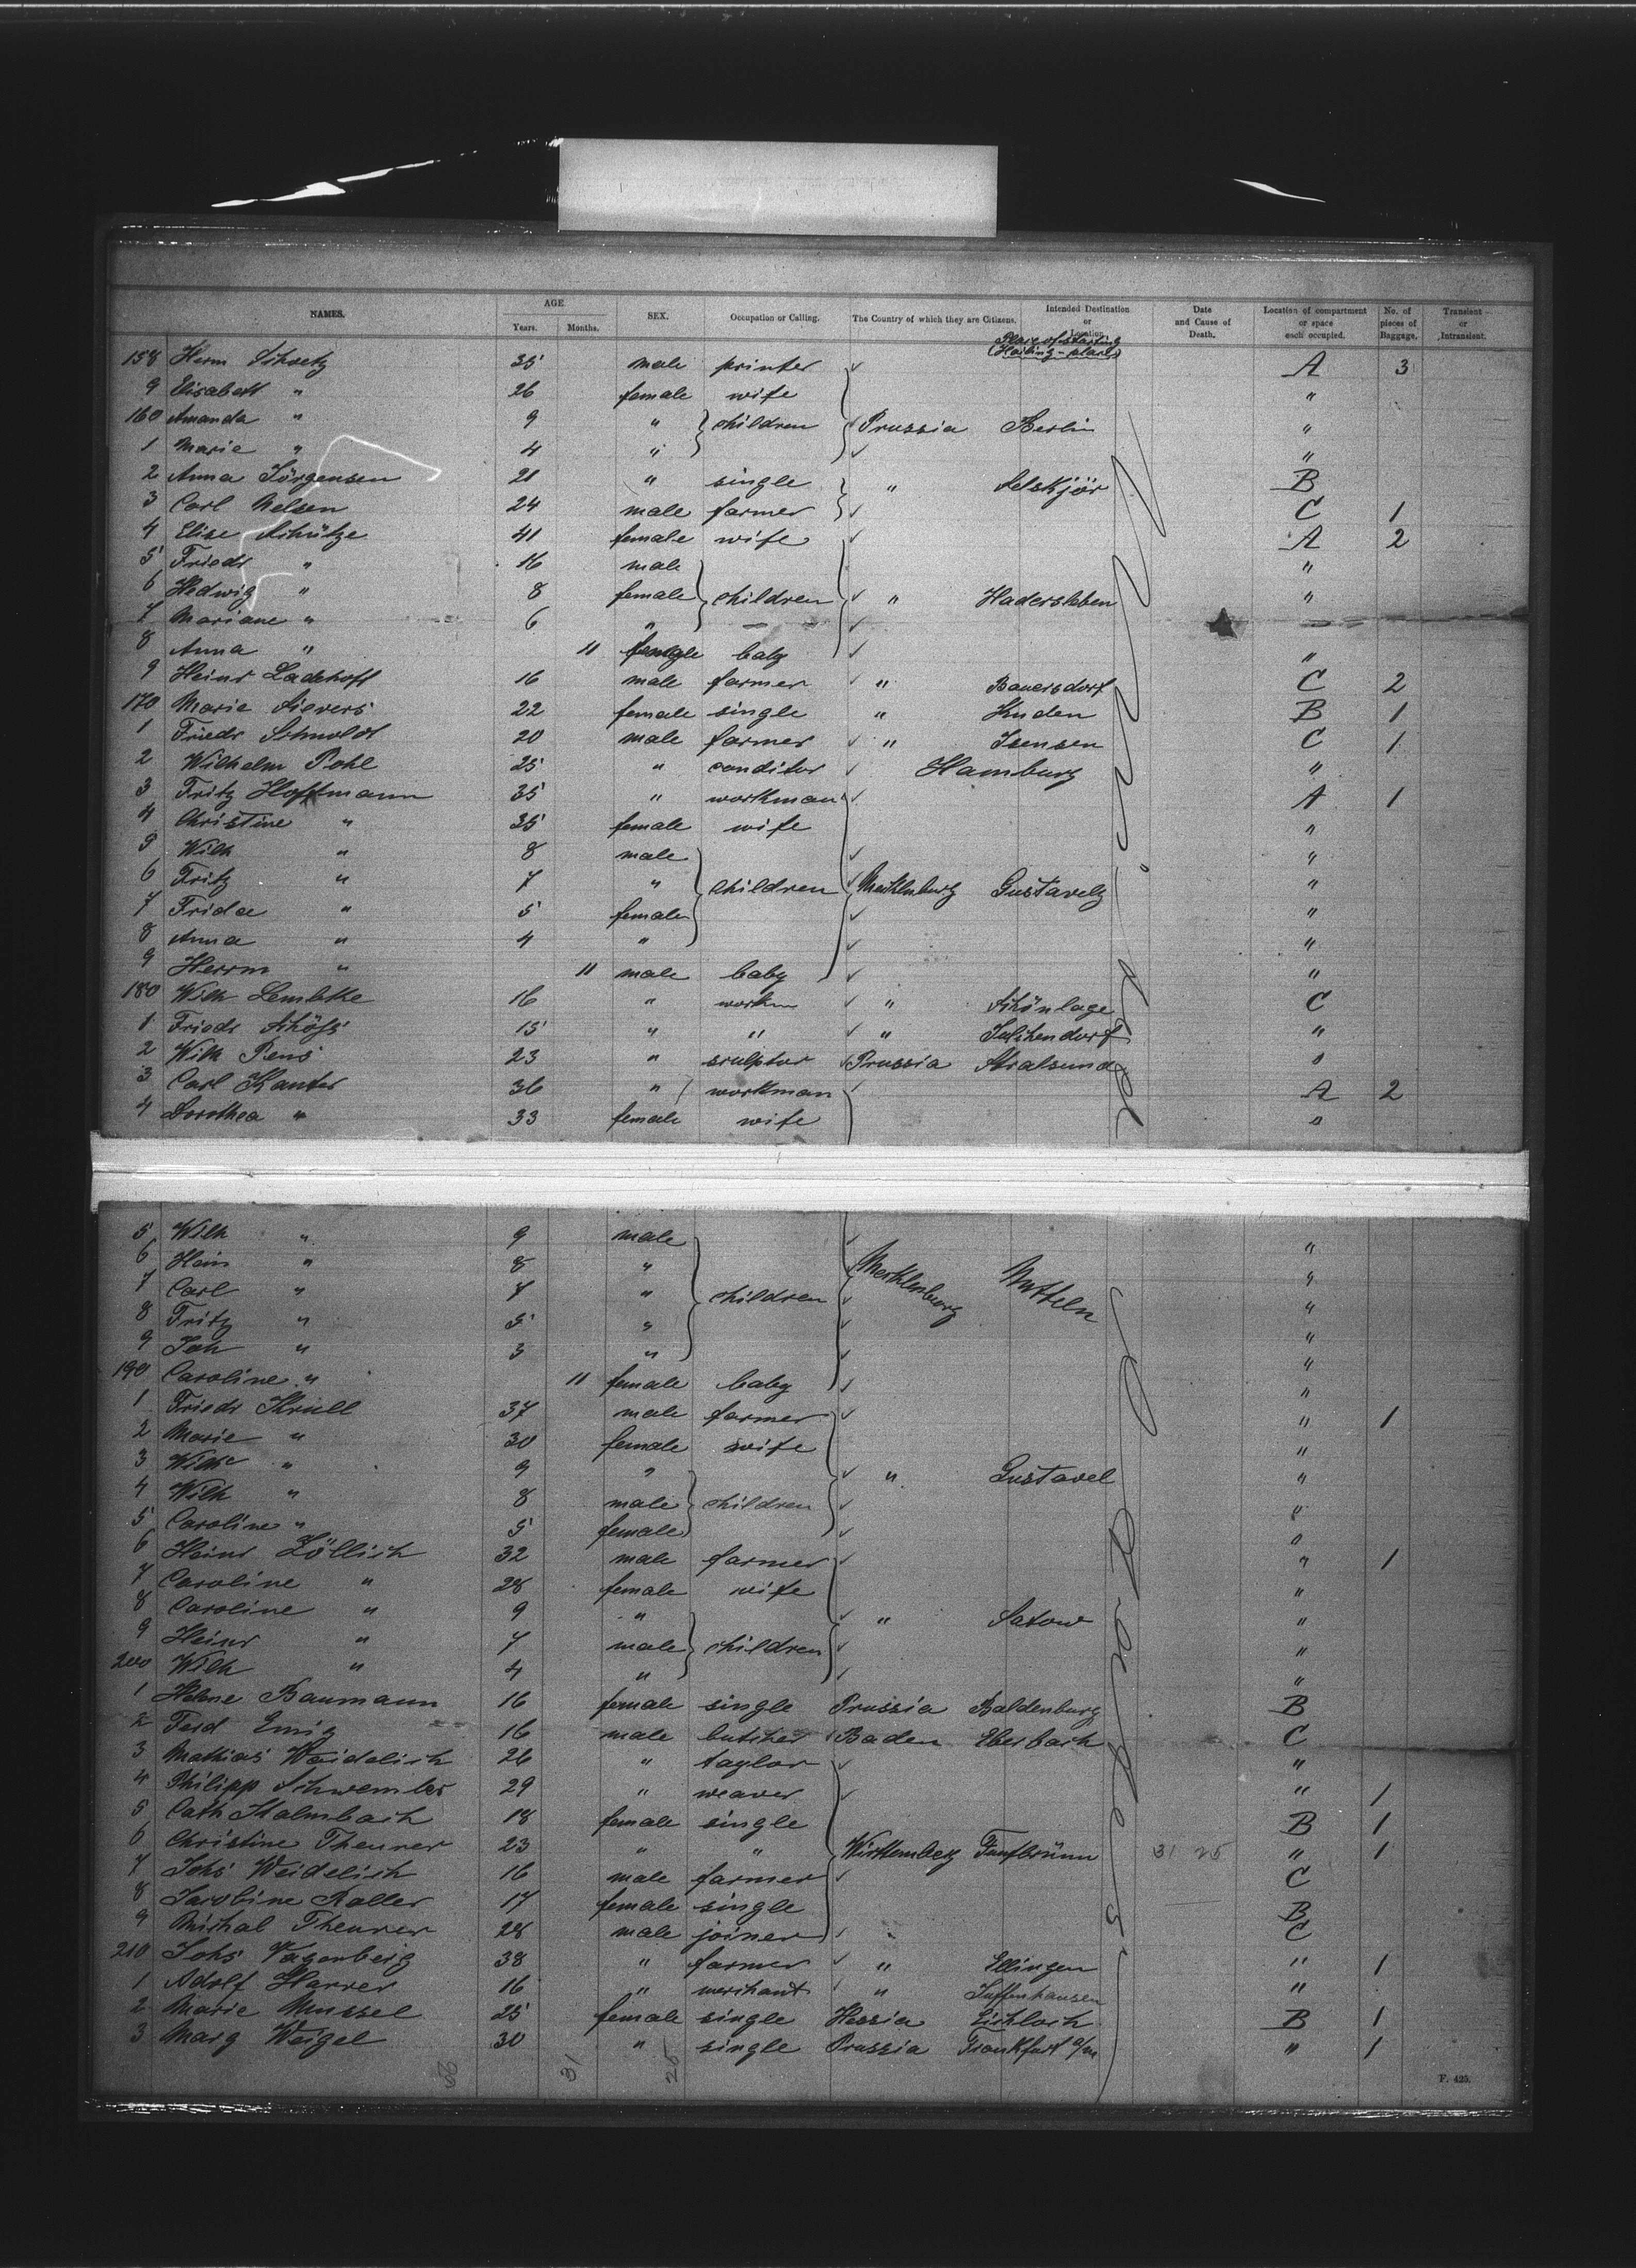 NAMES. AGE. Years. Months. SEX. Occupation or Calling. The Country of which they are Citizens. Intended Destination or Location Date and Cause of Death. Location of compartment or space each occupied. No. of pieces of Baggage. Transient or Intransient.
Place of starting
158 Herm 35 male printer A 3
9 Elisabeth " 26 female wife "
160 Amanda " 9 " children Prussia Berlin "
1 Marie " 4 " "
2 Anna Jörgensen 21 " single " B
3 Carl Nelsen 24 male farmer C 1
4 Elise Schütze 41 female wife A 2
5 Friedr " 16 male "
6 Hedwig " 8 female children " Hadersleben "
7 Mariane " 6 "
8 Anna " 11 female baby "
9 Heinr Ladehoff 16 male farmer " Bauersdorf C 2
170 Marie Sievers 22 female single " Kuden B 1
1 Friedr Schmoldt 20 male farmer " Isensen C 1
2 Wilhelm Pohl 25 " conditor Hamburg "
3 Fritz Hoffmann 35 " workman A 1
4 Christine " 35 female wife "
5 Wilh " 8 male "
6 Fritz " 7 " children Mecklenburg "
7 Frida " 5 female "
8 Anna " 4 " "
9 Herrm " 11 male baby "
180 Wilh Lembke 16 " workm " Schönlage C
1 Friedr 15 " " " "
2 Wilh Pens 23 " sculptor Prussia Stralsund "
3 Carl Kanter 36 " workman A 2
4 Dorothea " 33 female wife "
5 Wilh " 9 male "
6 Hein " 8 " "
7 Carl " 7 " children Mecklenburg "
8 Fritz " 5 " "
9 Joh " 3 " "
190 Caroline " 11 female baby "
1 Friedr Krull 37 male farmer " 1
2 Marie " 30 female wife "
3 Wilhe " 9 " " Gustavel "
4 Wilh " 8 male children "
5 Caroline " 5 female "
6 Heinr Zöllich 32 male farmer " 1
7 Caroline " 28 female wife "
8 Caroline " 9 " " Satow "
9 Heinr " 7 male children "
200 Wilh " 4 " "
1 Helene Baumann 16 female single Prussia Baldenburg B
2 Ferd Emig 16 male butcher Baden Eberbach C
3 Mathias Weidelich 26 " taylor "
4 Philipp Schwemler 29 " weaver " 1
5 Cath Kalmbach 18 female single B 1
6 Christine Theurer 23 " " Würtemberg Fünfbrünn 31 25 " 1
7 Johs Weidelich 16 male farmer C
8 Jacobine Roller 17 female single B
9 Michal Theurer 28 male joiner C
210 Johs 38 " farmer " Ellingen " 1
1 Adolf Harrer 16 " merchant " "
2 Marie Mussel 25 female single Hessia B 1
3 Marg Weigel 30 " single Prussia Frankfurt a/m " 1
31 25
F. 425.